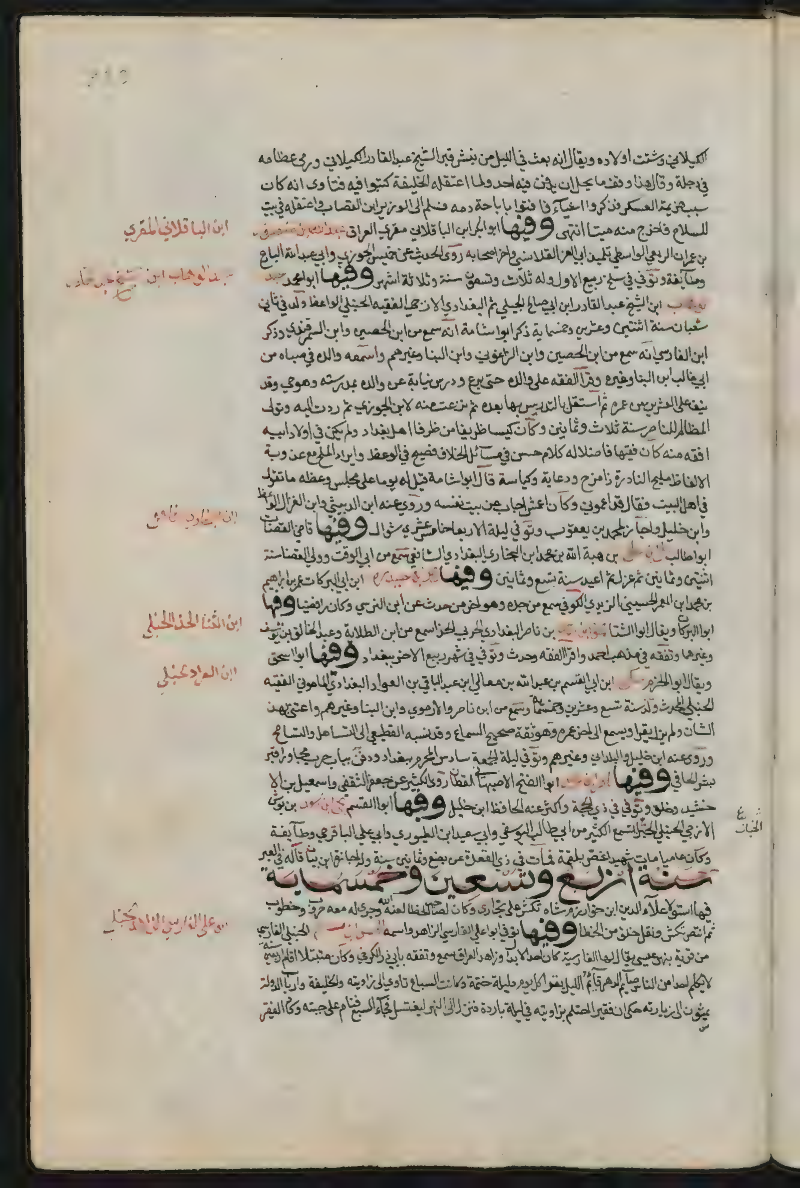 الكيلاني وشتت اولاده ويقال انه بعث في الليل من نبش قبر الشيخ عبد القادر الكيلاني ورمى عظامه
في دجلة وقال هذا وقف ما يحل ان يدفن فيه احد ولما اعتقله الخليفة كتبوا فيه فتاوى انه كان
سبب هزيمة العسكر وذكروا اشياء فافتوا باباحة دمه فسلم الى الوزير ابن القصاب فاعتقله في بيت
للسلاح فاخرج منه ميتا انتهى وفيها ابو بكر ابن الباقلاني مقرئ العراق عبد الله بن منصور
بن عمران الربعي الواسطي تلميذ ابي العز القلانسي واخر اصحابه روى الحديث عن خميس الحوزي وابي عبد الله البارع
وطائفة وتوفي في سلخ ربيع الاول وله ثلاث وتسعون سنة وثلاثة اشهر وفيها ابو محمد عبد
الوهاب ابن الشيخ عبد القادر ابن ابي صالح الجيلي ثم البغدادي الازجي الفقيه الحنبلي الواعظ ولد في ثاني
شعبان سنة اثنتين وعشرين وخمسماية ذكر ابو شامة انه سمع من ابن الحصين وابن السمرقندي وذكر
ابن القادسي انه سمع من ابن الحصين وابن الزاغوني وابن البنا وغيرهم واسمعه والده في صباه من
ابي غالب ابن البنا وغيره وقرأ الفقه على والده حتى برع ودرس نيابة عن والده بمدرسته وهو حي وقد
نيف على العشرين من عمره ثم استقل بالتدريس بها بعده ثم نزعت منه لابن الجوزي ثم ردت اليه وتولى
المظالم للناصر سنة ثلاث وثمانين وكان كيسا ظريفا من ظرفاء اهل بغداد ولم يكن في اولاد ابيه
افقه منه كان فقيها فاضلا له كلام حسن في مسائل الخلاف فصيح في الوعظ وايراد الملح مع عذوبة
الالفاظ مليح النادرة ذا مزح ودعابة وكياسة قال ابو شامة قيل له يوما على مجلس وعظه ما تقول
في اهل البيت فقال قد اعموني وكان اعمش اجاب عن بيت نفسه وروى عنه ابن الدبيثي وابن الغزال الواعظ
وابن خليل واجاز لمحمد بن يعقوب وتوفي ليلة الاربعا خامس عشري شوال وفيها قاضي القضاة
ابو طالب علي بن علي بن هبة الله بن محمد ابن البخاري البغدادي الشافعي سمع من ابي الوقت وولي القضا سنة
اثنتين وثمانين ثم عزل ثم اعيد سنة تسع وثمانين وفيها ابن ابي البركات عمر بن ابراهيم
بن محمد ابن المعمر الحسيني الزيدي الكوفي سمع من جده وهو اخر من حدث عن ابي النرسي وكان رافضيا وفيها
ابو البركات ويقال ابو الثنا بن ناصر البغدادي الحربي الحذا سمع من ابن الطلاية وعبد الخالق بن يوسف
وغيرهما وتفقه في مذهب احمد واقرأ الفقه وحدث وتوفي في شهر ربيع الاخر ببغداد وفيها ابو اسحق
ويقال ابو الحزم مكي ابن ابي القسم بن عبد الله بن معالي ابن عبد الباقي بن العراد البغدادي الماموني الفقيه
الحنبلي المحدث ولد سنة تسع وعشرين وخمسماية وسمع من ابن ناصر والارموي وابن البنا وغيرهم واعتنى بهذا
الشان ولم يزل يقرا ويسمع الى اخر عمره وهو ثقة صحيح السماع وقد نسبه القطيعي الى التساهل والتسامح
وروى عنه ابن خليل والبلداني وغيرهم وتوفي ليلة الجمعة سادس المحرم ببغداد ودفن بباب حرب مجاورا قبر
بشر الحافي وفيها ابو الفتح الاصبهاني القطان روى الكثير عن جعفر الثقفي واسمعيل بن الا
خشيد وخلق وتوفي في ذي الحجة واكثر عنه الحافظ ابن خليل وفيها ابو القسم يحيى ابن اسعد بن بوش
الازجي الحنبلي الخباز سمع الكثير من ابي طالب اليوسفي وابي سعد ابن الطيوري وابي علي الباقرحي وطائفة
وكان عاميا مات شهيدا غص بلقمة فمات في ذي القعدة عن بضع وثمانين سنة وله اجازة ابن بيان قاله في العبر
سنة اربع وتسعين وخمسماية
فيها استولى علاء الدين ابن خوارزم شاه تكش على بخارى وكان لصاحب الخطا لعنه الله وجرى له معه حروب وخطوب
ثم انتصر تكش وقتل خلق من الخطا وفيها توفي ابو علي الفارسي الزاهد واسمه الحسن بن مسلم الحنبلي الفارسي
من قرية بنهر عيسى يقال لها الفارسية كان احد الابدال وزاهد العراق سمع وتفقه بابي البدر الكرخي وكان متبتلا اقام اربعين سنة
لا يكلم احدا من الناس صايم الدهر قائم الليل يقرا كل يوم وليلة ختمة وكانت السباع تاوي الى زاويته والخليفة وارباب الدولة
يمشون الى زيارته حكى ان فقيرا احتلم بزاويته في ليلة باردة فنزل الى النهر ليغتسل فجاء السبع فنام على جبته وكاد الفقير
ابن الباقلاني المقري
عبد الوهاب ابن الشيخ عبد القادر
ابن البخاري قاضي
ابن الثنا الحذا الحنبلي
ابن العراد الحنبلي
ابو علي الفارسي الزاهد الحنبلي
الخباز